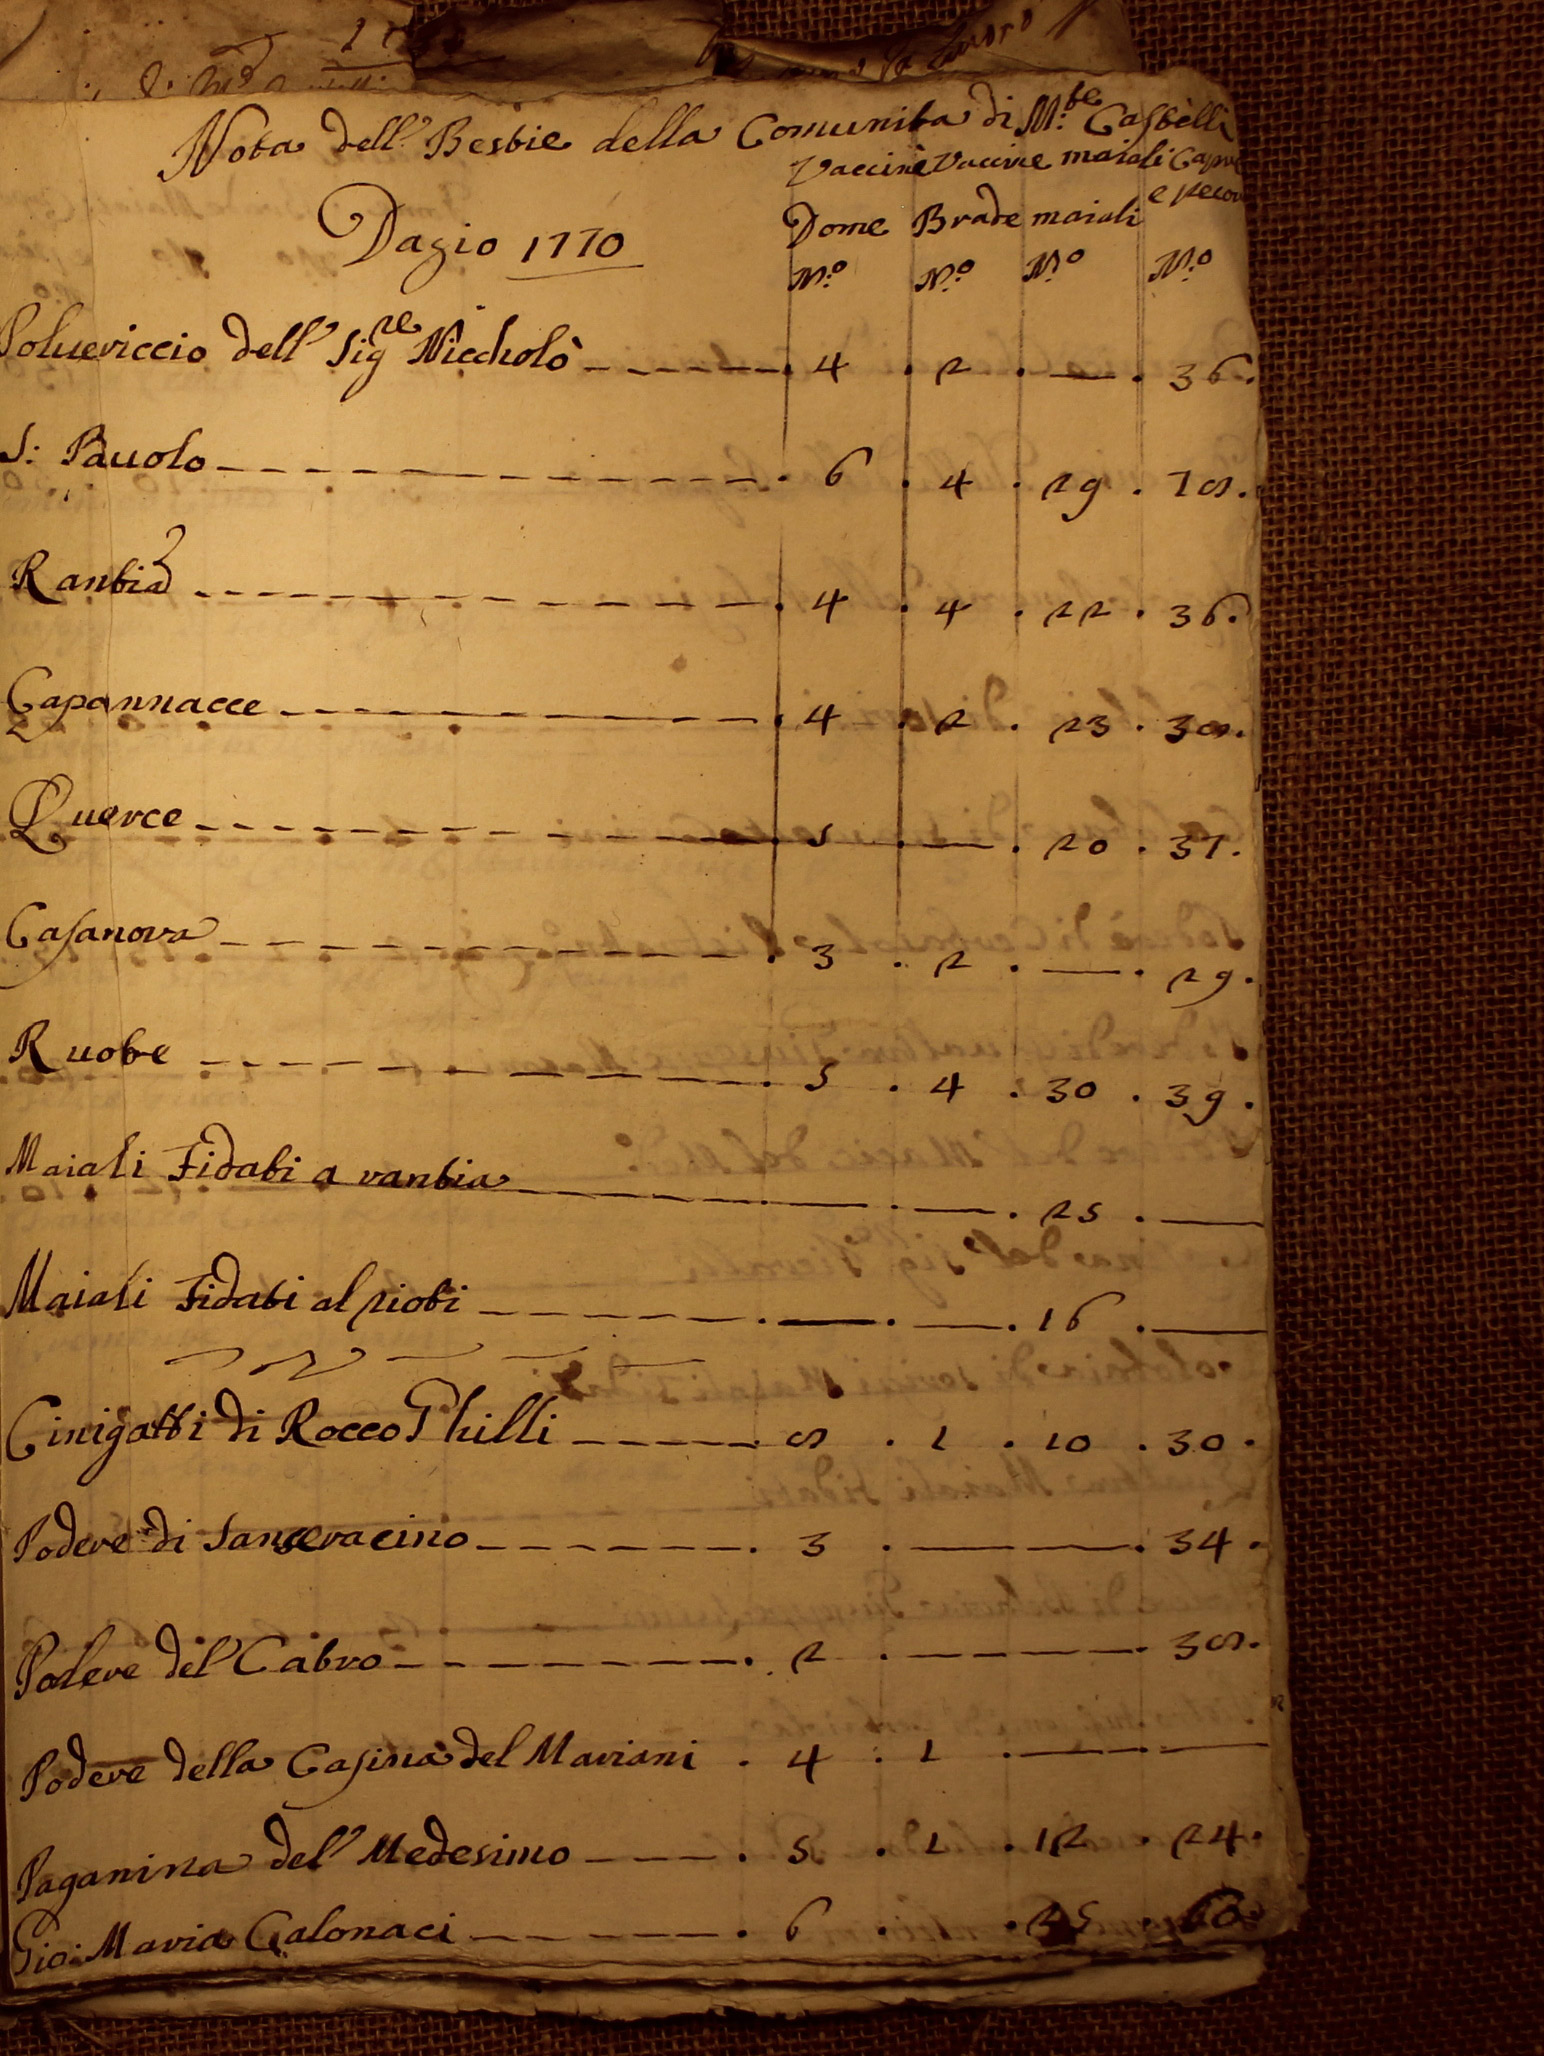 Nota dell' Bestie della Comunita di M.te Castelli
Vaccine Vaccine maiali Capre
Dazio 1770 Dome Brade maiali e pecore
N.o N.o N.o N.o
Poluericcio dell' Sig.re Niccholò 4 . 2 . — . 36.
S: Pauolo 6 . 4 . 29 . 78.
Rantia 4 . 4 . 22 . 36.
Capannacce 4 . 2 . 23 . 38.
Querce 5 . — . 20 . 37.
Casanova 3 . 2 . — . 29.
Ruote 5 . 4 . 30 . 39.
Maiali Fidati a rantia — . — . 25 . —
Maiali Fidati al rioti . — . — . 16 . —
Cinigatti di Rocco Ghilli 8 . 1 . 10 . 30.
Podere di Sanseracino . 3 . — — . 34.
Podere del' Cabro . 2 . — — . 38.
Podere della Casina del Mariani . 4 . 1 . — . —
Paganina del' Medesimo . 5 . 1 . 12 . 24.
Gio: Maria Galonaci . 6 . . 25 . 60.